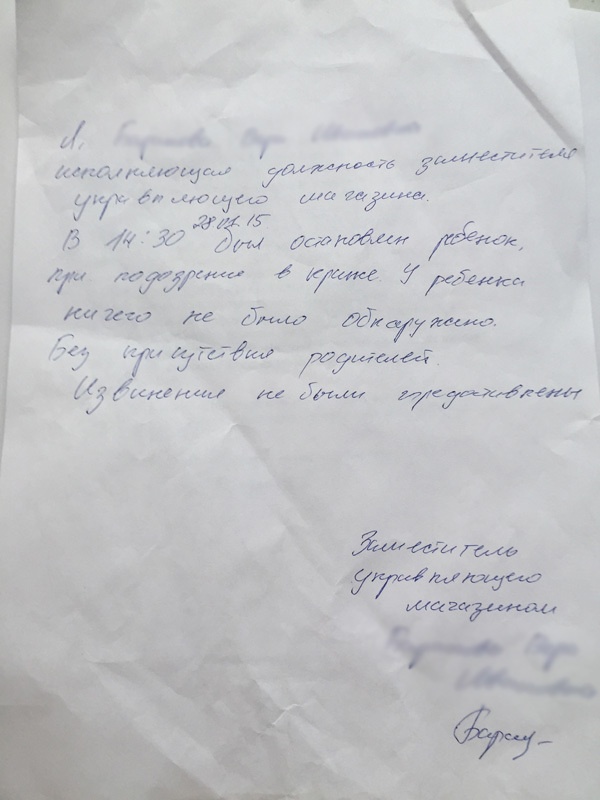 Я,
исполняющая должность заместителя
управляющего магазина.
28.07.15
В 14:30 был остановлен ребенок,
при подозрение в краже. У ребенка
ничего не было обнаружено.
Без присутствия родителей.
Извинения не были предоставлены
Заместитель
управляющего
магазином